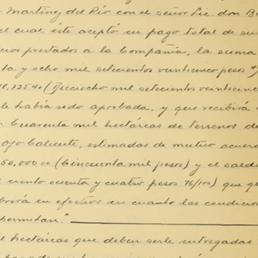 Martínez del Río con el señor Lic. don B
el cual este aceptó en pago total de su
os prestados a la Compañía, la suma
ta y ocho mil setecientos veinticinco pesos
8,725.40 (Dieciocho mil setecientos veinticinco
le había sido aprobada, y que recibirá
Cuarenta mil hectáreas de terrenos de
ojo Caliente, estimadas de mutuo acuer
50,000.00 (Cincuenta mil pesos) y el saldo
ciento ochenta y cuatro pesos 76/100) que
birá en efectivo en cuanto las condicio
permitan."
l hectáreas que deben serle entregadas